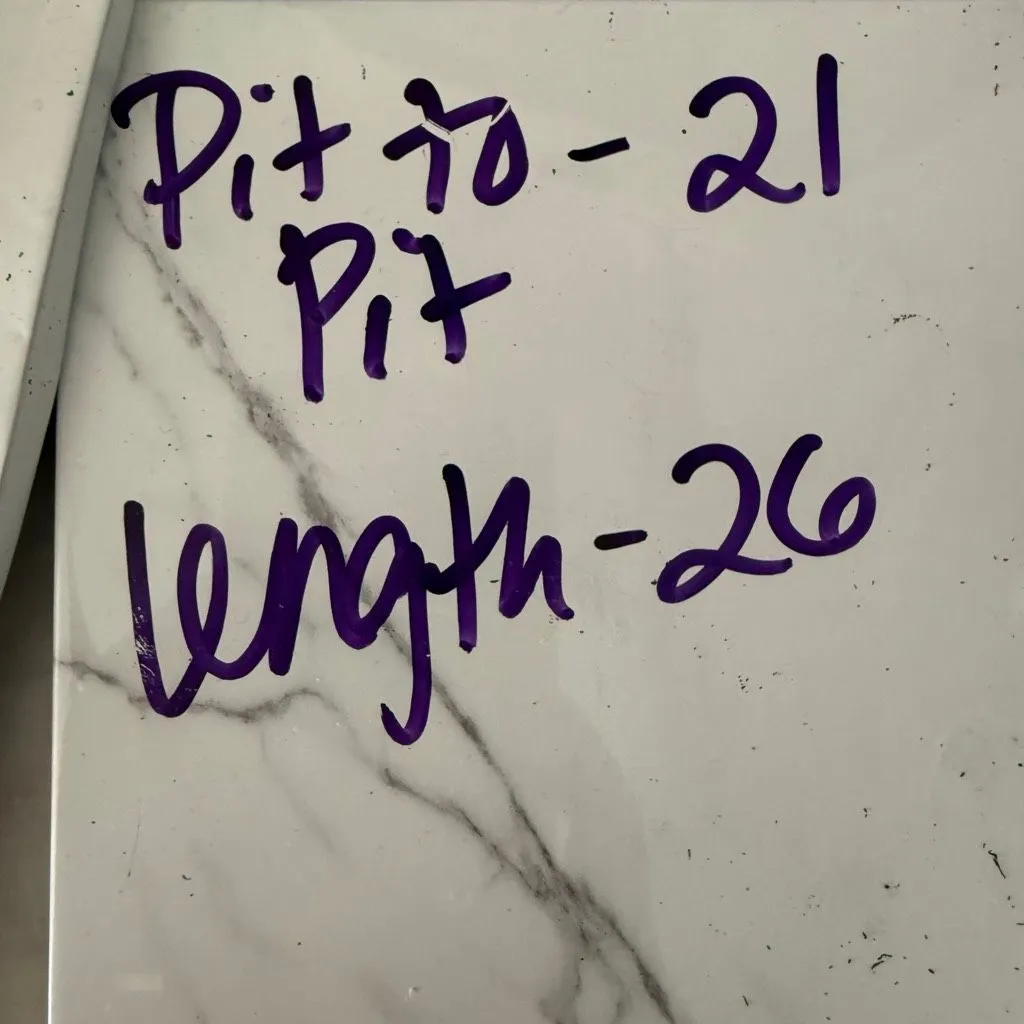 Pit to - 21
Pit
length - 26